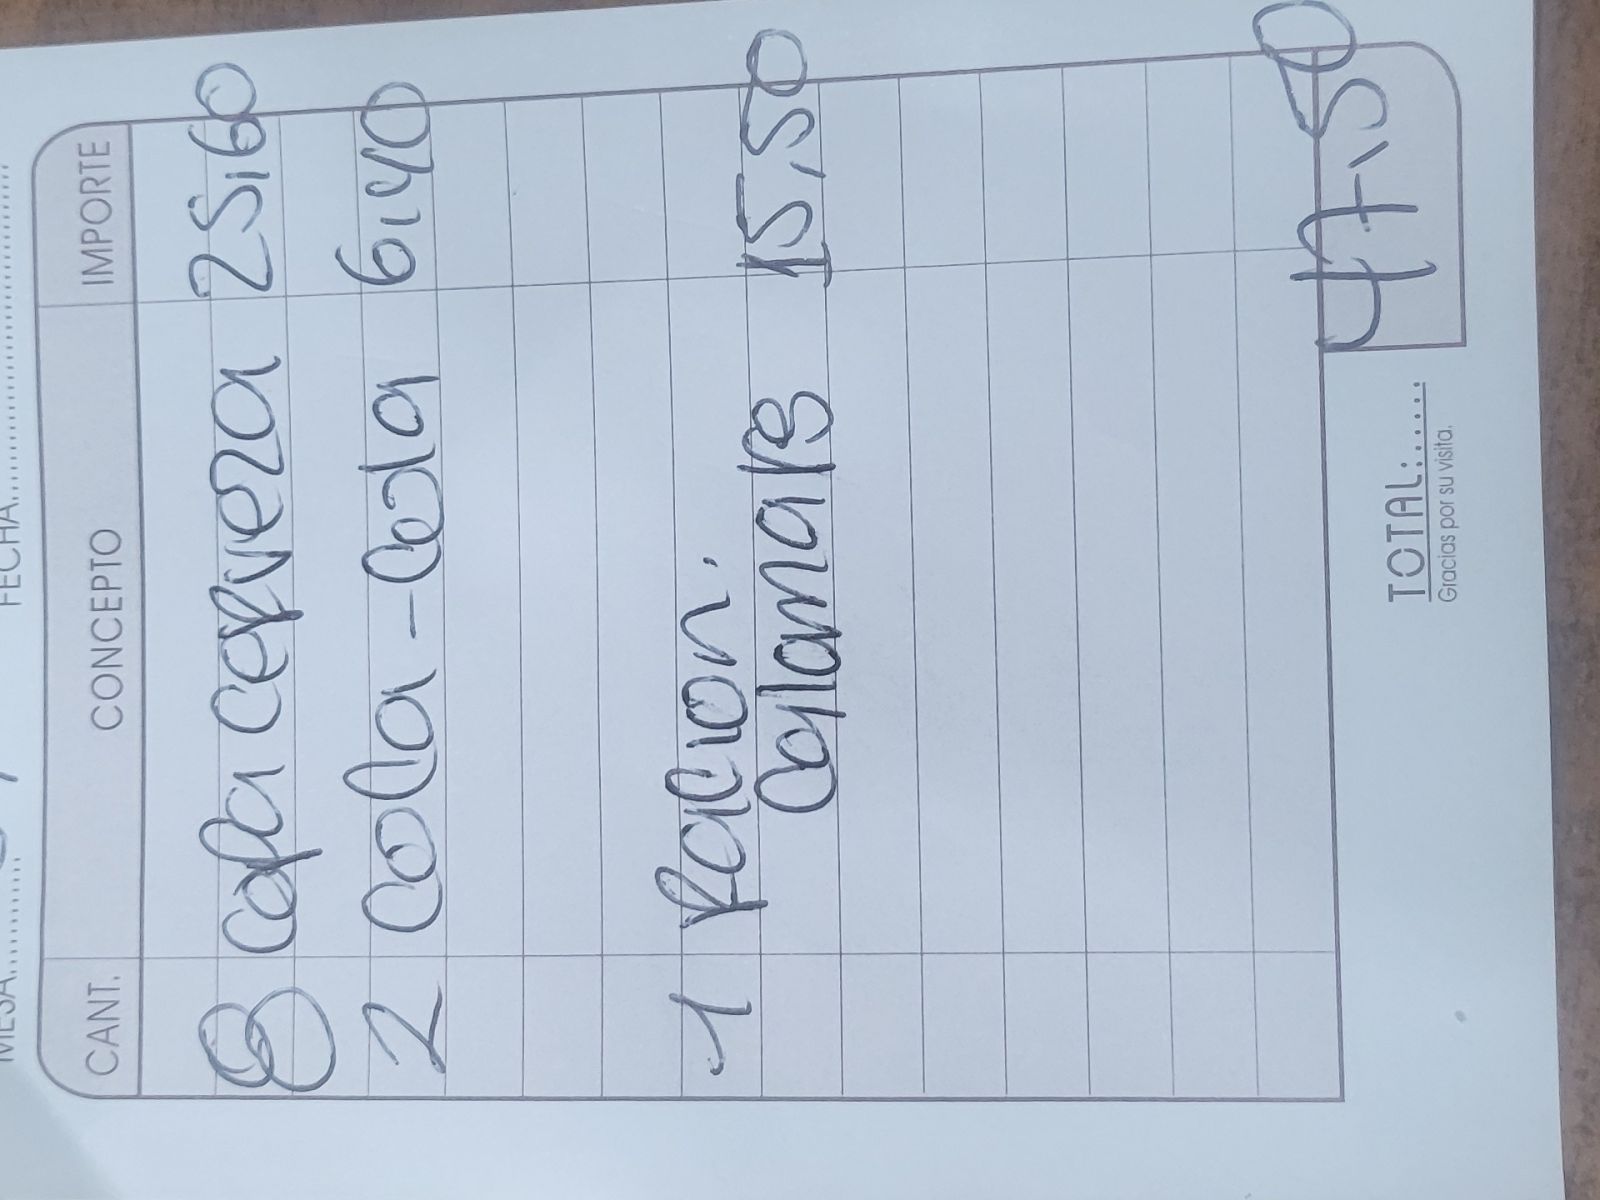 MESA
FECHA
CANT. CONCEPTO IMPORTE
8 copa cerveza 25,60
2 cola-cola 6,40
1 Racion.
Calamares 15,50
TOTAL: 47,50
Gracias por su visita.